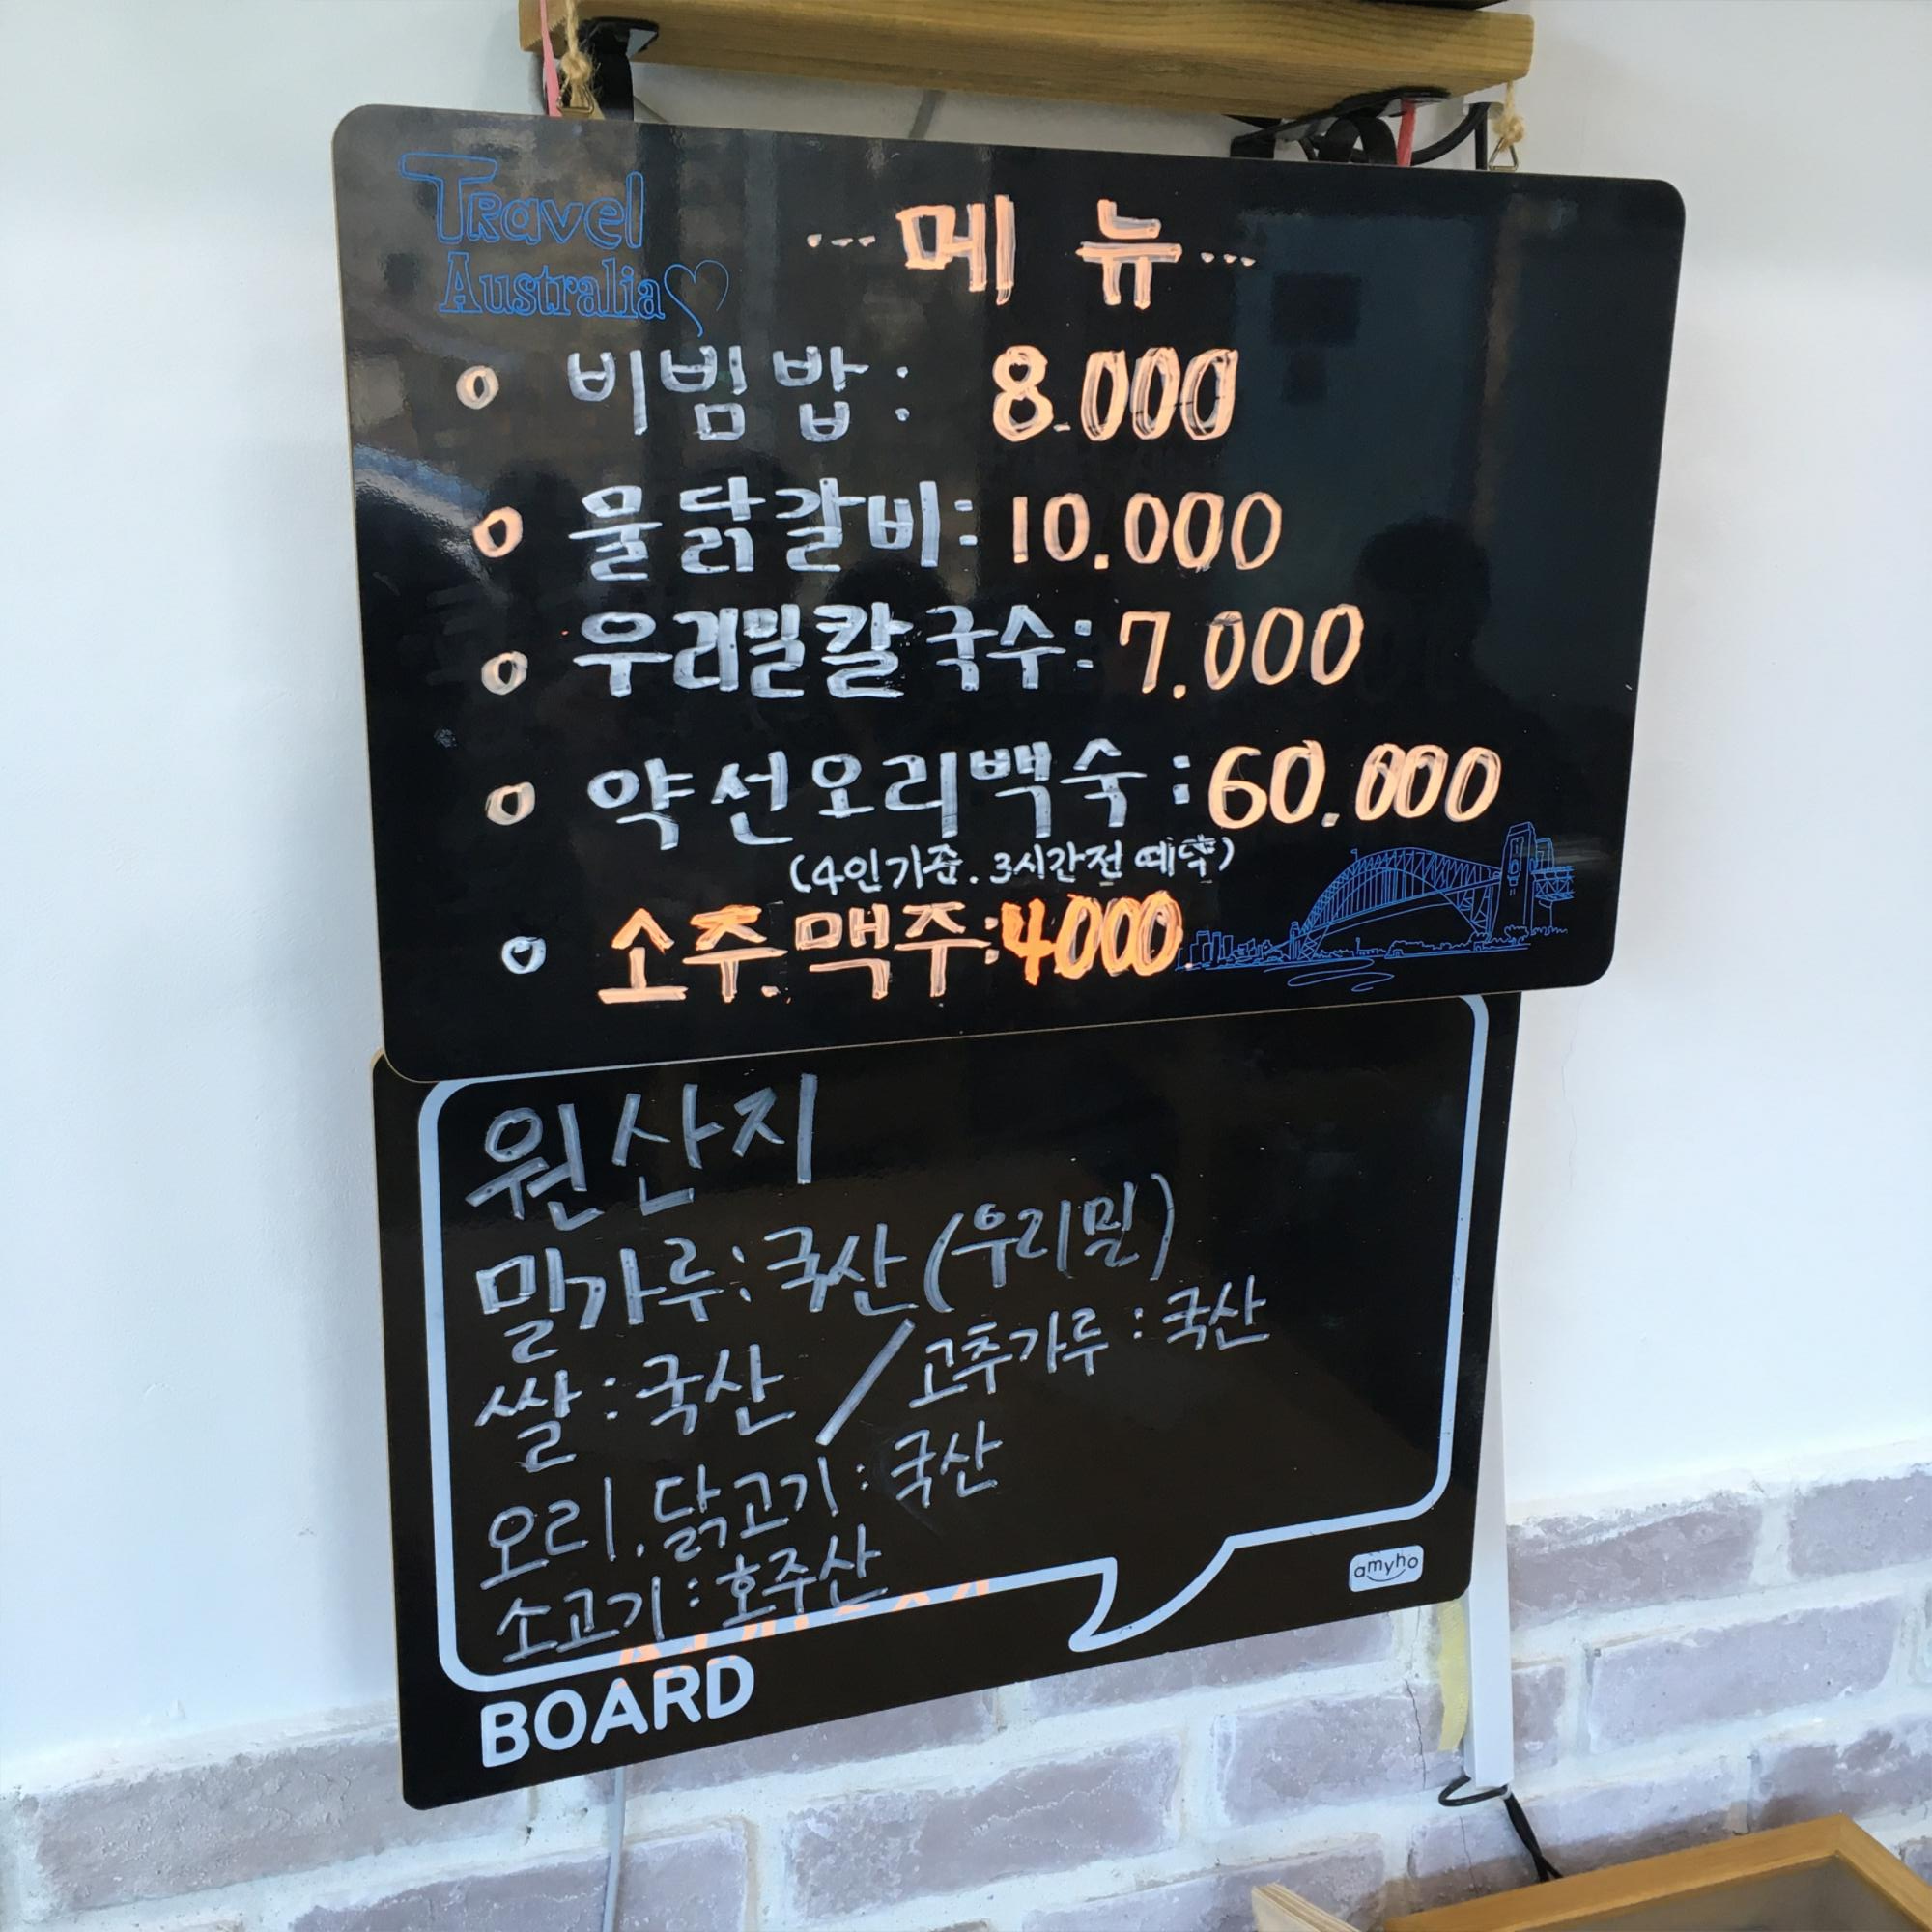 Travel
Australia
... 메 뉴 ...
o 비빔밥 : 8.000
o 물닭갈비 : 10.000
o 우리밀칼국수 : 7.000
o 약선오리백숙 : 60.000
(4인기준. 3시간전 예약)
o 소주.맥주:4000.
원산지
밀가루 : 국산 (우리밀)
쌀 : 국산 / 고추가루 : 국산
오리. 닭고기 : 국산
소고기 : 호주산
amyho
BOARD